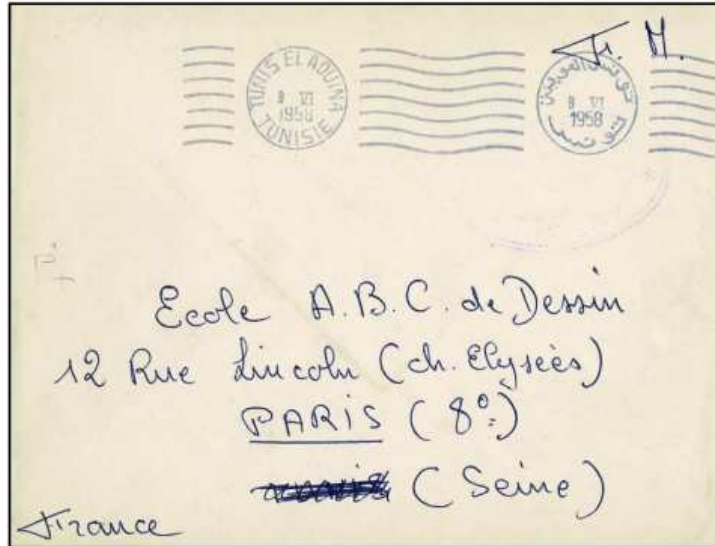 F. M.
TUNIS EL AOUINA
8 VI
1958
TUNISIE
تونس العوينة
8 VI
1958
تونس
Ecole A.B.C. de Dessin
12 Rue Lincoln (ch. Elyseès)
PARIS (8º)
(Seine)
France